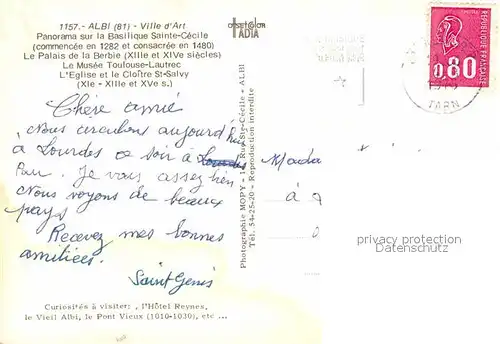 1157.- ALBI (81) - Ville d'Art
Panorama sur la Basilique Sainte-Cécile
(commencée en 1282 et consacrée en 1480)
Le Palais de la Berbie (XIIIe et XIVe siècles)
Le Musée Toulouse-Lautrec
L'Eglise et le Cloître St-Salvy
(XIe - XIIIe et XVe s.)
TADIA
0,80
TARN
Chère amie
Nous circulons aujourd'hui
à Lourdes ce soir à Lourdes
Pau. Je vous assez bien
Nous voyons de beaux
pays
Recevez mes bonnes
amitiées.
Saint Genis
Photographie MOPY - Rue Ste-Cécile - ALBI
Tél. 54-25-20 - Reproduction interdite
Mada
à
privacy protection
Datenschutz
Curiosités à visiter: l'Hôtel Reynes,
le Vieil Albi, le Pont Vieux (1010-1030), etc ...